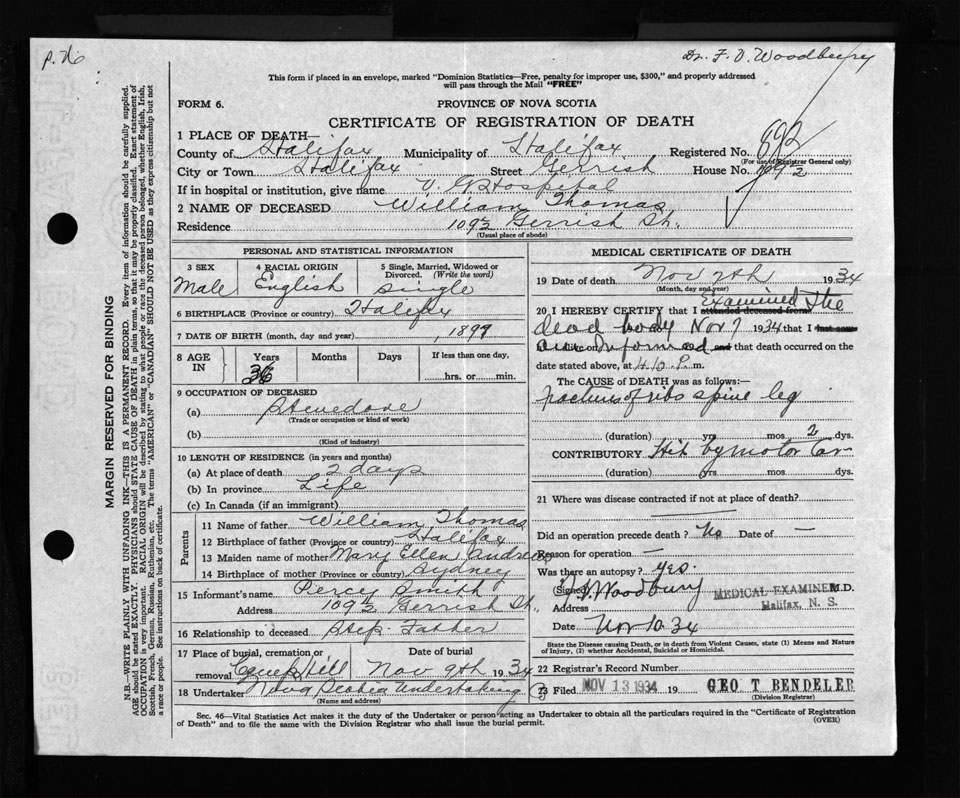 p. 76
Dr. F. V. Woodbury
This form if placed in an envelope, marked "Dominion Statistics—Free, penalty for improper use, $300," and properly addressed
will pass through the Mail "FREE"
FORM 6.
PROVINCE OF NOVA SCOTIA
CERTIFICATE OF REGISTRATION OF DEATH
1 PLACE OF DEATH—
County of Halifax Municipality of Halifax Registered No. 892
(For use of Registrar General only)
City or Town Halifax Street Gerrish House No. 109½
If in hospital or institution, give name V. G. Hospital
2 NAME OF DECEASED William Thomas
Residence 109½ Gerrish St.
(Usual place of abode)
PERSONAL AND STATISTICAL INFORMATION
3 SEX Male
4 RACIAL ORIGIN English
5 Single, Married, Widowed or Divorced. (Write the word) Single
6 BIRTHPLACE (Province or country) Halifax
7 DATE OF BIRTH (month, day and year) , 1898
8 AGE IN Years 36 Months Days If less than one day, hrs. or min.
9 OCCUPATION OF DECEASED
(a) Stevedore
(Trade or occupation or kind of work)
(b)
(Kind of industry)
10 LENGTH OF RESIDENCE (in years and months)
(a) At place of death 2 days
(b) In province Life
(c) In Canada (if an immigrant)
Parents
11 Name of father William Thomas
12 Birthplace of father (Province or country) Halifax
13 Maiden name of mother Mary Ellen Andrews
14 Birthplace of mother (Province or country) Sydney
15 Informant's name Percy Smith
Address 109½ Gerrish St.
16 Relationship to deceased Step-Father
17 Place of burial, cremation or removal Camp Hill Date of burial Nov 9th 1934
18 Undertaker Nova Scotia Undertaking Co
(Name and address)
MEDICAL CERTIFICATE OF DEATH
19 Date of death Nov 7th 1934
(Month, day and year)
20 I HEREBY CERTIFY that I attended deceased from Examined the
dead body Nov 7 1934 that I last saw
alive on Informed and that death occurred on the
date stated above, at 4.10 P. m.
The CAUSE of DEATH was as follows:—
fractures of ribs spine leg
(duration) yrs mos 2 dys.
CONTRIBUTORY Hit by motor Car
(duration) yrs mos dys.
21 Where was disease contracted if not at place of death?
Did an operation precede death? No Date of —
Reason for operation —
Was there an autopsy? yes.
(Signed) Woodbury M.D.
MEDICAL EXAMINER
Halifax, N. S.
Address
Date Nov 10 34
State the Disease causing Death, or in death from Violent Causes, state (1) Means and Nature
of Injury, (2) whether Accidental, Suicidal or Homicidal.
22 Registrar's Record Number
23 Filed NOV 13 1934 19 GEO T BENDELER
(Division Registrar)
Sec. 46—Vital Statistics Act makes it the duty of the Undertaker or person acting as Undertaker to obtain all the particulars required in the "Certificate of Registration
of Death" and to file the same with the Division Registrar who shall issue the burial permit.
(OVER)
MARGIN RESERVED FOR BINDING
N.B.—WRITE PLAINLY WITH UNFADING INK—THIS IS A PERMANENT RECORD. Every item of information should be carefully supplied.
AGE should be stated EXACTLY. PHYSICIANS should STATE CAUSE OF DEATH in plain terms, so that it may be properly classified. Exact statement of
OCCUPATION is very important. RACIAL ORIGIN will be described by stating to what people or race the deceased person belonged, whether English, Irish,
Scottish, French, German, Russian, Ruthenian, etc. The terms "AMERICAN" or "CANADIAN" SHOULD NOT BE USED as they express citizenship but not
a race or people. See instructions on back of certificate.